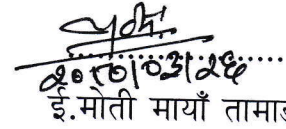 २०८०|०३|२६
ई.मोती मायाँ तामाङ